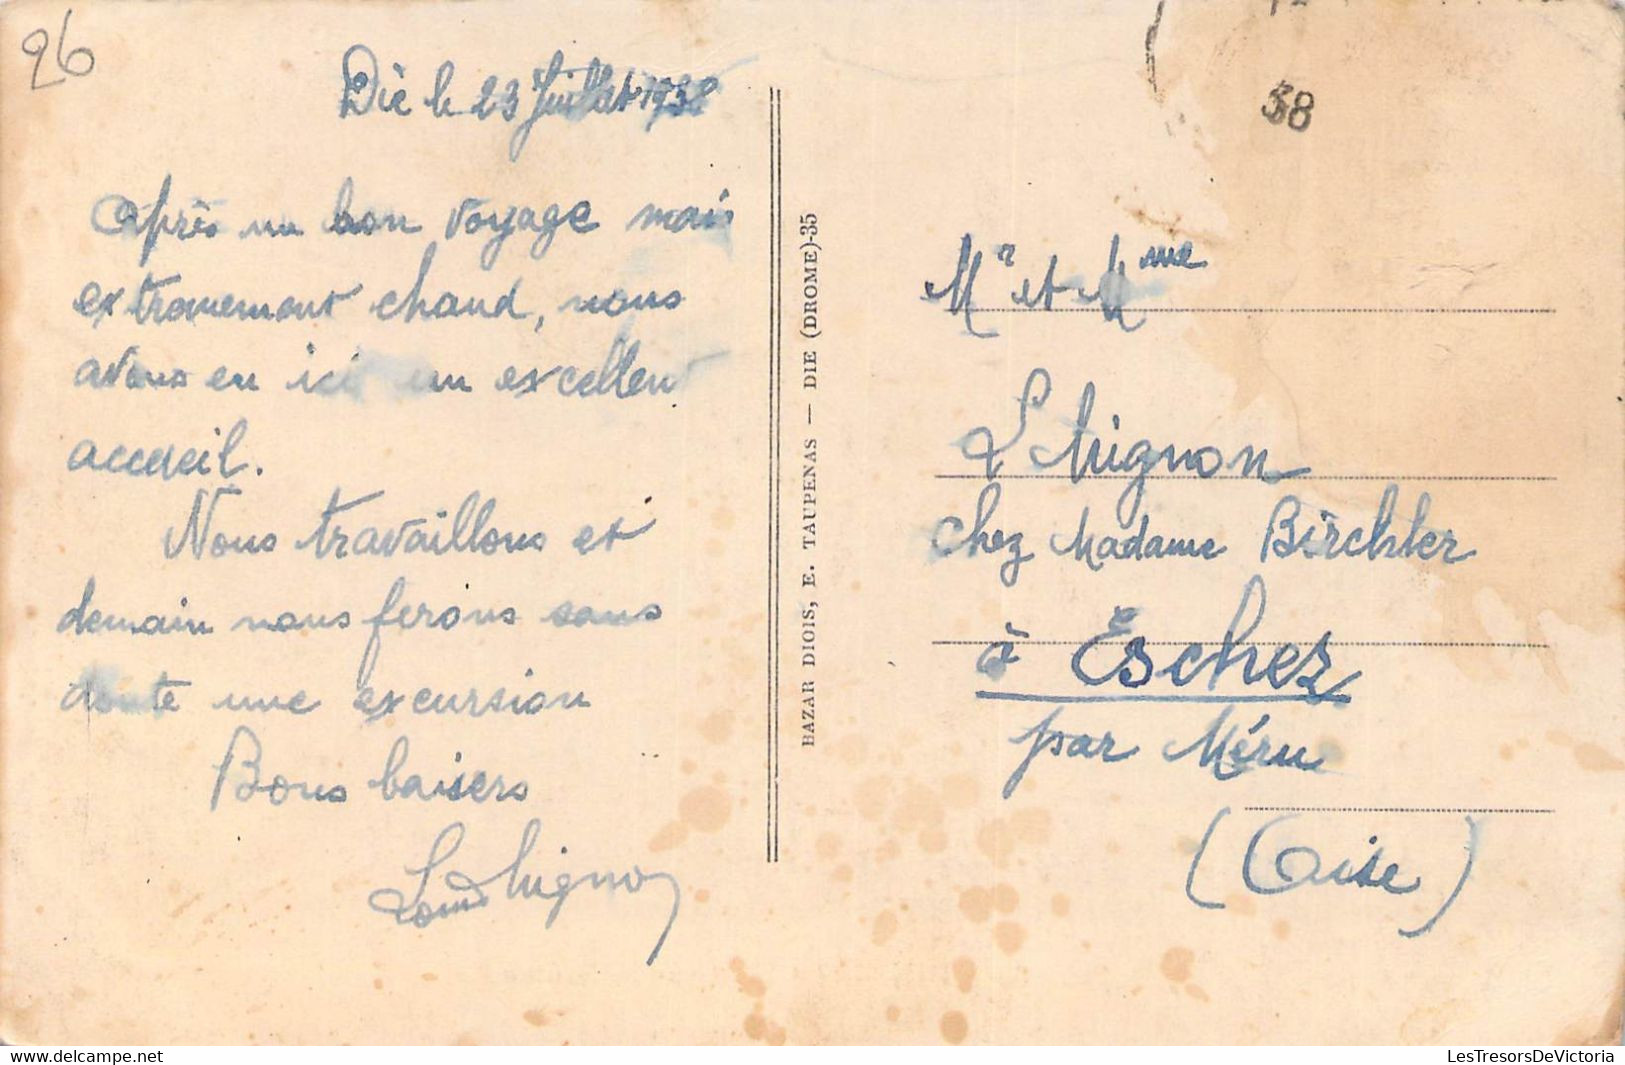 26
Die le 23 Juillet 1938
Après un bon voyage mais
extremement chaud, nous
avons eu ici un excellent
accueil.
Nous travaillons et
demain nous ferons sans
doute une excursion
Bons baisers
Louis Mignon
BAZAR DIOIS, E. TAUPENAS — DIE (DROME)-35
38
Mr et Mme
L Mignon
chez Madame Birchler
à Esches
par Méru
(Oise)
LesTresorsDeVictoria
delcampe.net